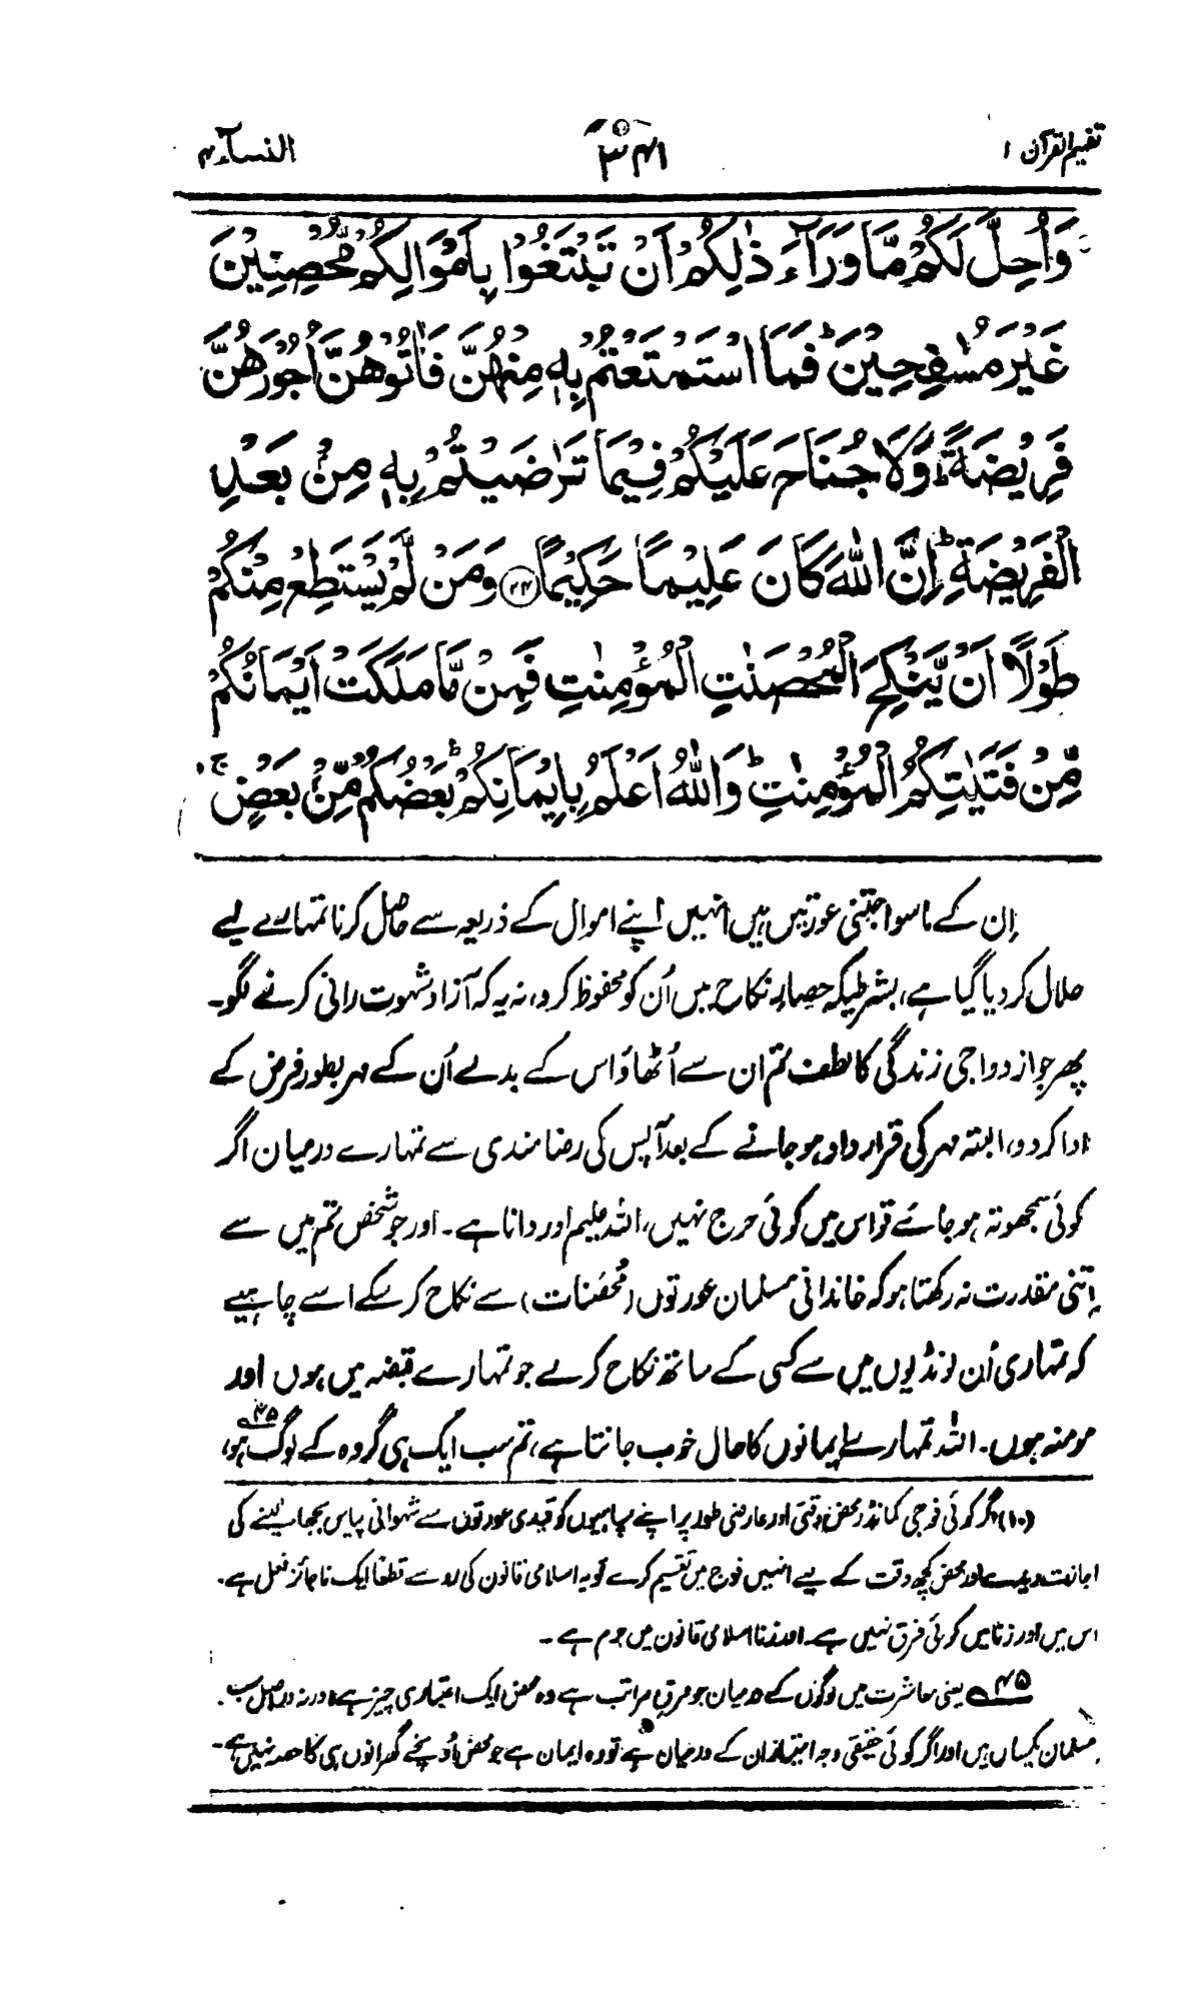 تفہیم القرآن ۱
۳۴۱
النسآء ۴
وَاُحِلَّ لَكُمْ مَّا وَرَآءَ ذٰلِكُمْ اَنْ تَبْتَغُوْا بِاَمْوَالِكُمْ مُّحْصِنِيْنَ
غَيْرَ مُسٰفِحِيْنَ ؕ فَمَا اسْتَمْتَعْتُمْ بِهٖ مِنْهُنَّ فَاٰتُوْهُنَّ اُجُوْرَهُنَّ
فَرِيْضَةً ؕ وَلَا جُنَاحَ عَلَيْكُمْ فِيْمَا تَرٰضَيْتُمْ بِهٖ مِنْۢ بَعْدِ
الْفَرِيْضَةِ ؕ اِنَّ اللّٰهَ كَانَ عَلِيْمًا حَكِيْمًا ۝۲۴ وَمَنْ لَّمْ يَسْتَطِعْ مِنْكُمْ
طَوْلًا اَنْ يَّنْكِحَ الْمُحْصَنٰتِ الْمُؤْمِنٰتِ فَمِنْ مَّا مَلَكَتْ اَيْمَانُكُمْ
مِّنْ فَتَيٰتِكُمُ الْمُؤْمِنٰتِ ؕ وَاللّٰهُ اَعْلَمُ بِاِيْمَانِكُمْ ؕ بَعْضُكُمْ مِّنْۢ بَعْضٍ ۚ
اِن کے ماسوا جتنی عورتیں ہیں انہیں اپنے اموال کے ذریعہ سے حاصل کرنا تمہارے لیے
حلال کر دیا گیا ہے، بشرطیکہ حصارِ نکاح میں اُن کو محفوظ کرو، نہ یہ کہ آزاد شہوت رانی کرنے لگو۔
پھر جو ازدواجی زندگی کا لطف تم ان سے اُٹھاؤ اس کے بدلے اُن کے مہر بطور فرض کے
ادا کرو، البتہ مہر کی قرارداد ہو جانے کے بعد آپس کی رضامندی سے تمہارے درمیان اگر
کوئی سمجھوتہ ہو جائے تو اس میں کوئی حرج نہیں، اللہ علیم اور دانا ہے۔ اور جو شخص تم میں سے
اِتنی مقدرت نہ رکھتا ہو کہ خاندانی مسلمان عورتوں (مُحصَنات) سے نکاح کر سکے اسے چاہیے
کہ تمہاری اُن لونڈیوں میں سے کسی کے ساتھ نکاح کر لے جو تمہارے قبضہ میں ہوں اور
مومنہ ہوں۔ اللہ تمہارے ایمانوں کا حال خوب جانتا ہے، تم سب ایک ہی گروہ کے لوگ ہو، ۴۵
(۱۰) اگر کوئی فوجی کمانڈر محض وقتی اور عارضی طور پر اپنے سپاہیوں کو قیدی عورتوں سے شہوانی پیاس بجھا لینے کی
اجازت دیدے اور محض کچھ وقت کے لیے انہیں فوج میں تقسیم کرے تو یہ اسلامی قانون کی رو سے قطعًا ایک ناجائز فعل ہے۔
اس میں اور زنا میں کوئی فرق نہیں ہے۔ اور زنا اسلامی قانون میں جرم ہے۔
۴۵ یعنی معاشرت میں لوگوں کے درمیان جو فرقِ مراتب ہے وہ محض ایک اعتباری چیز ہے، ورنہ دراصل سب
مسلمان یکساں ہیں اور اگر کوئی حقیقی وجہ امتیاز ان کے درمیان ہے تو وہ ایمان ہے جو محض اُونچے گھرانوں ہی کا حصہ نہیں ہے۔